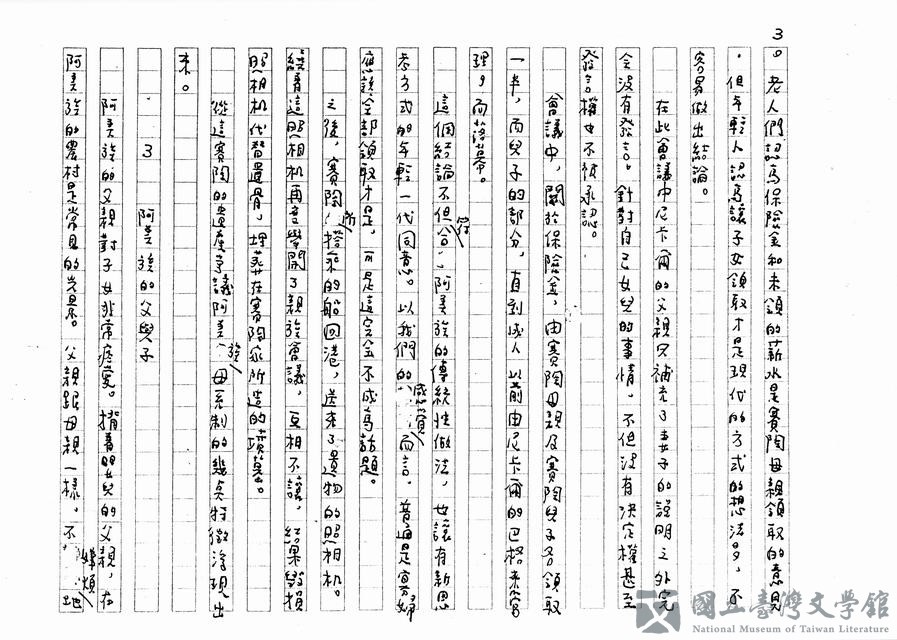 3
。老人們認為保險金和未領的薪水是賽陶母親領取的意見
，但年輕人認為讓子女領取才是現代的方式的想法多，不
容易做出結論。
在此會議中尼卡爾的父親只補充了妻子的說明之外完
全沒有發言。針對自己女兒的事情，不但沒有決定權甚至
發言權也不被承認。
會議中，關於保險金，由賽陶母親及賽陶兒子各領取
一半，而兒子的部分，直到成人以前由尼卡爾的巴格來管
理，而落幕。
這個結論不但符合阿美族的傳統性做法，也讓有新思
考方式的年輕一代同意。以我們的感覺而言，普通是寡婦
應該全部領取才是，可是這完全不成為話題。
之後，賽陶所搭乘的船回港，送來了遺物的照相機。
繞著這照相機再度舉開了親族會議，互相不讓，結果毀損
照相机代替遺骨，埋葬在賽陶家所造的墳墓。
從這賽陶的遺產爭議阿美族母系制的幾点特徵浮現出
來。
3 阿美族的父與子
阿美族的父親對子女非常疼愛。揹著嬰兒的父親，在
阿美族的農村是常見的光景。父親跟母親一樣，不嫌煩地
國立臺灣文學館
National Museum of Taiwan Literature